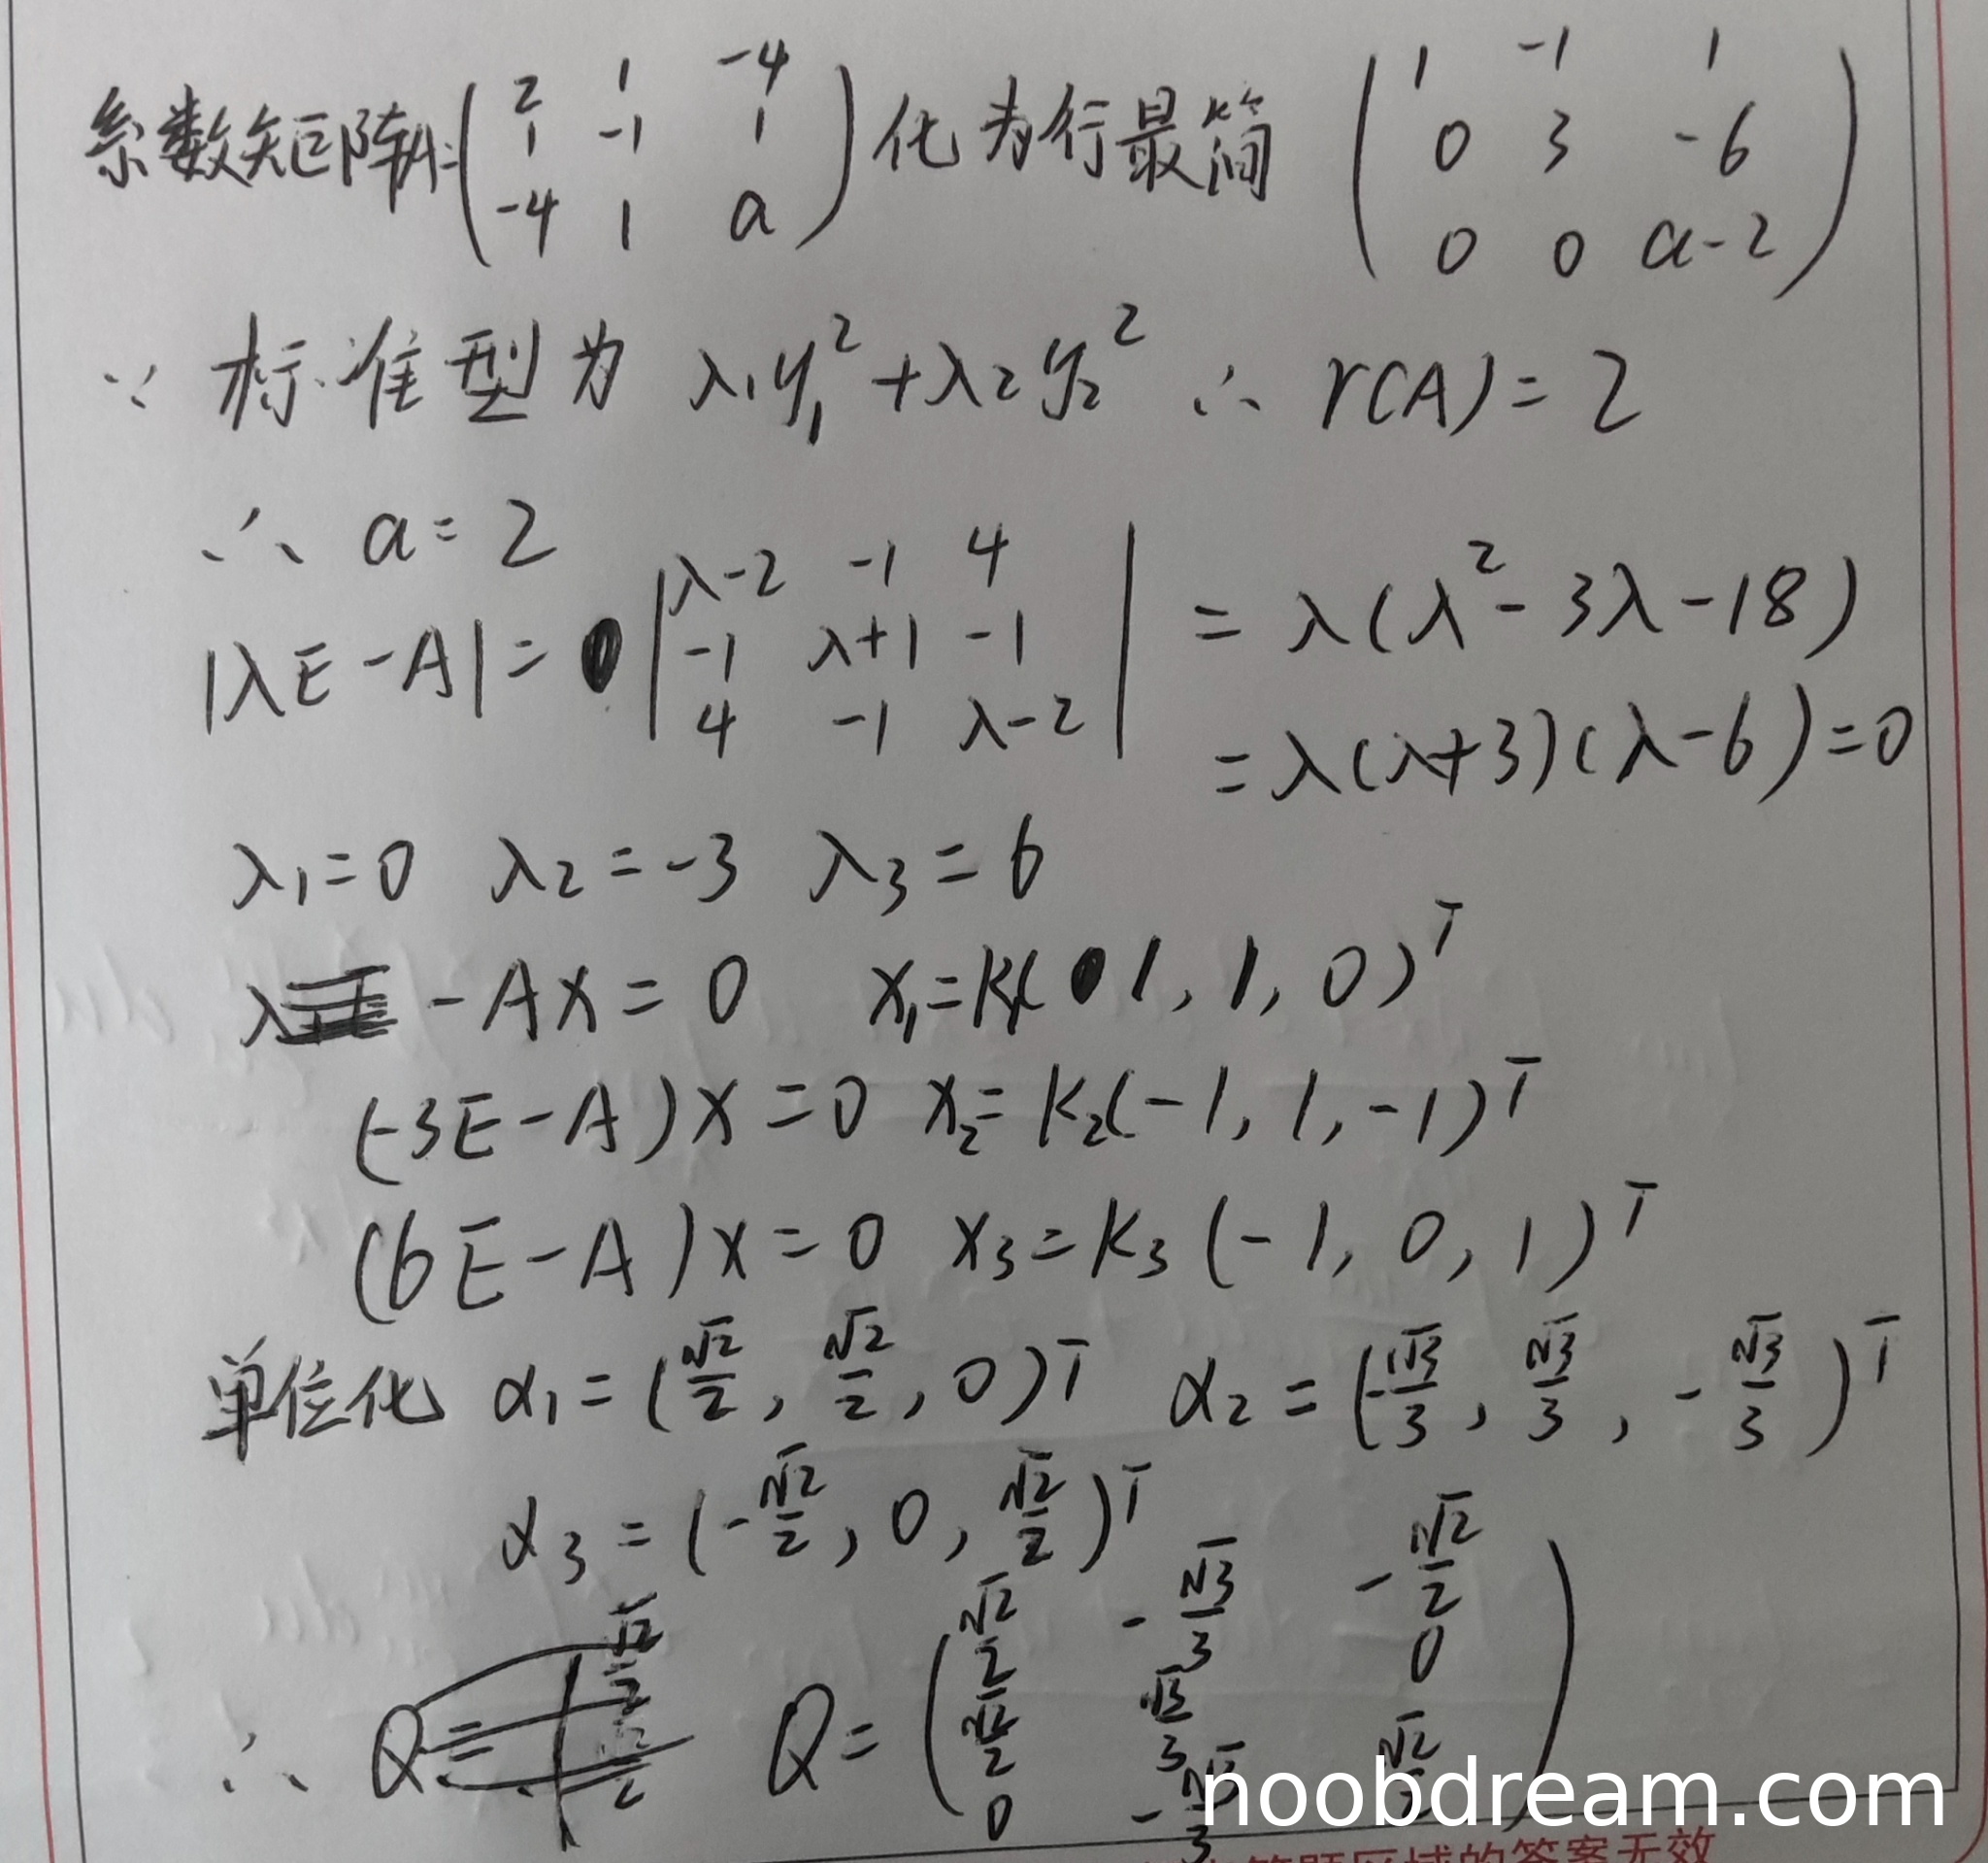 系数矩阵A=(2 1 -4 化为行最简 (1 -1 1
1 -1 1 0 3 -6
-4 1 a) 0 0 a-2)
∵ 标准型为 λ₁y₁²+λ₂y₂² ∴ r(A)=2
∴ a=2
|λE-A|= |λ-2 -1 4 = λ(λ²-3λ-18)
-1 λ+1 -1
4 -1 λ-2| =λ(λ+3)(λ-6)=0
λ₁=0 λ₂=-3 λ₃=6
λ -Ax=0 x₁=k₁(1,1,0)ᵀ
(-3E-A)x=0 x₂=k₂(-1,1,-1)ᵀ
(6E-A)x=0 x₃=k₃(-1,0,1)ᵀ
单位化 α₁=(√2/2,√2/2,0)ᵀ α₂=(-√3/3,√3/3,-√3/3)ᵀ
α₃=(-√2/2,0,√2/2)ᵀ
∴ Q= Q=(√2/2 -√3/3 -√2/2
√2/2 √3/3 0
0 -√3/3 √2/2)
noobdream.com
答题区域的答案无效